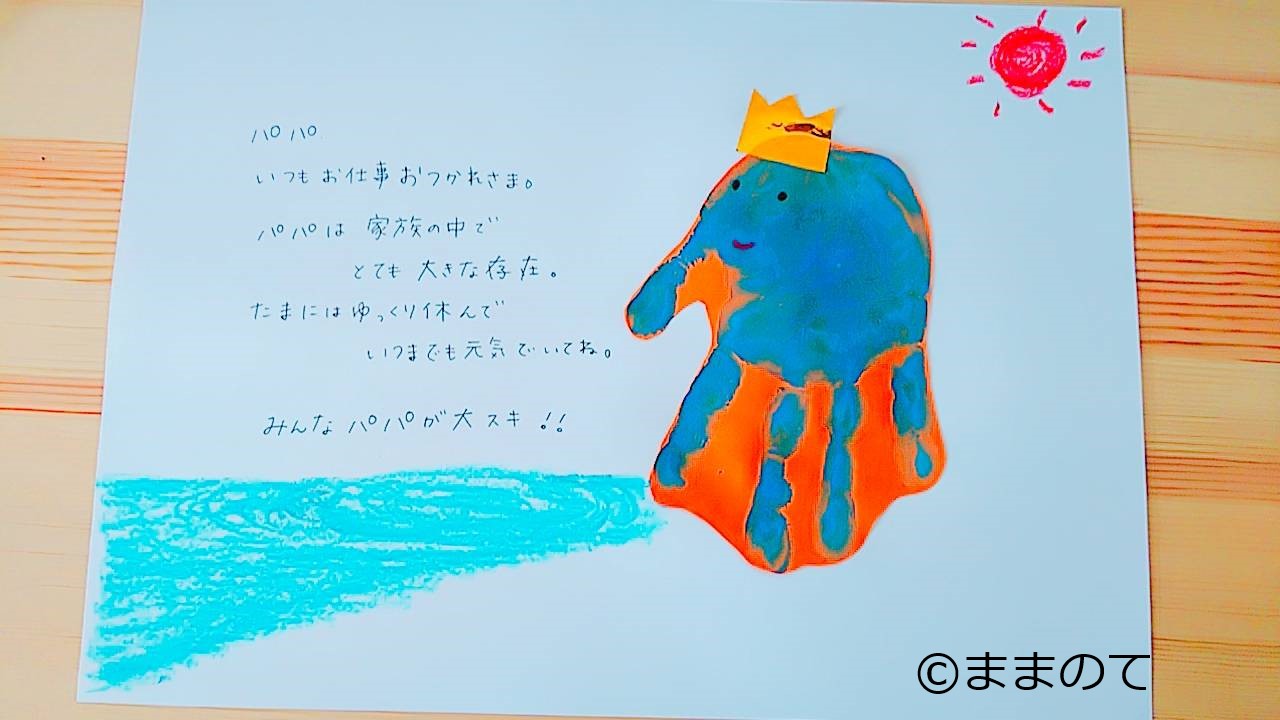 パパ
いつもお仕事おつかれさま。
パパは家族の中で
とても大きな存在。
たまにはゆっくり休んで
いつまでも元気でいてね。
みんなパパが大スキ!!
©ままのて